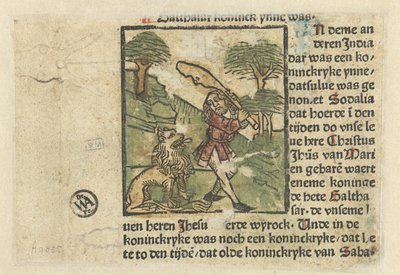 Balthasar koninck ynne was.
N deme an
deren India
dar was een ko-
ninckryke ynne,
datsulue was ge
non.et Sodalia
dat hoerde i den
tijden do vnse le
ue here Christus
Jhūs van Mari
en gebarē waert
eneme koninge
de hete Baltha
sar. de vnseme l
uen heren Jhesu erde wyrock. Unde in de
koninckryke was noch een koninckryke, dat he
te to den tijdē, dat olde koninckryke van Saba.